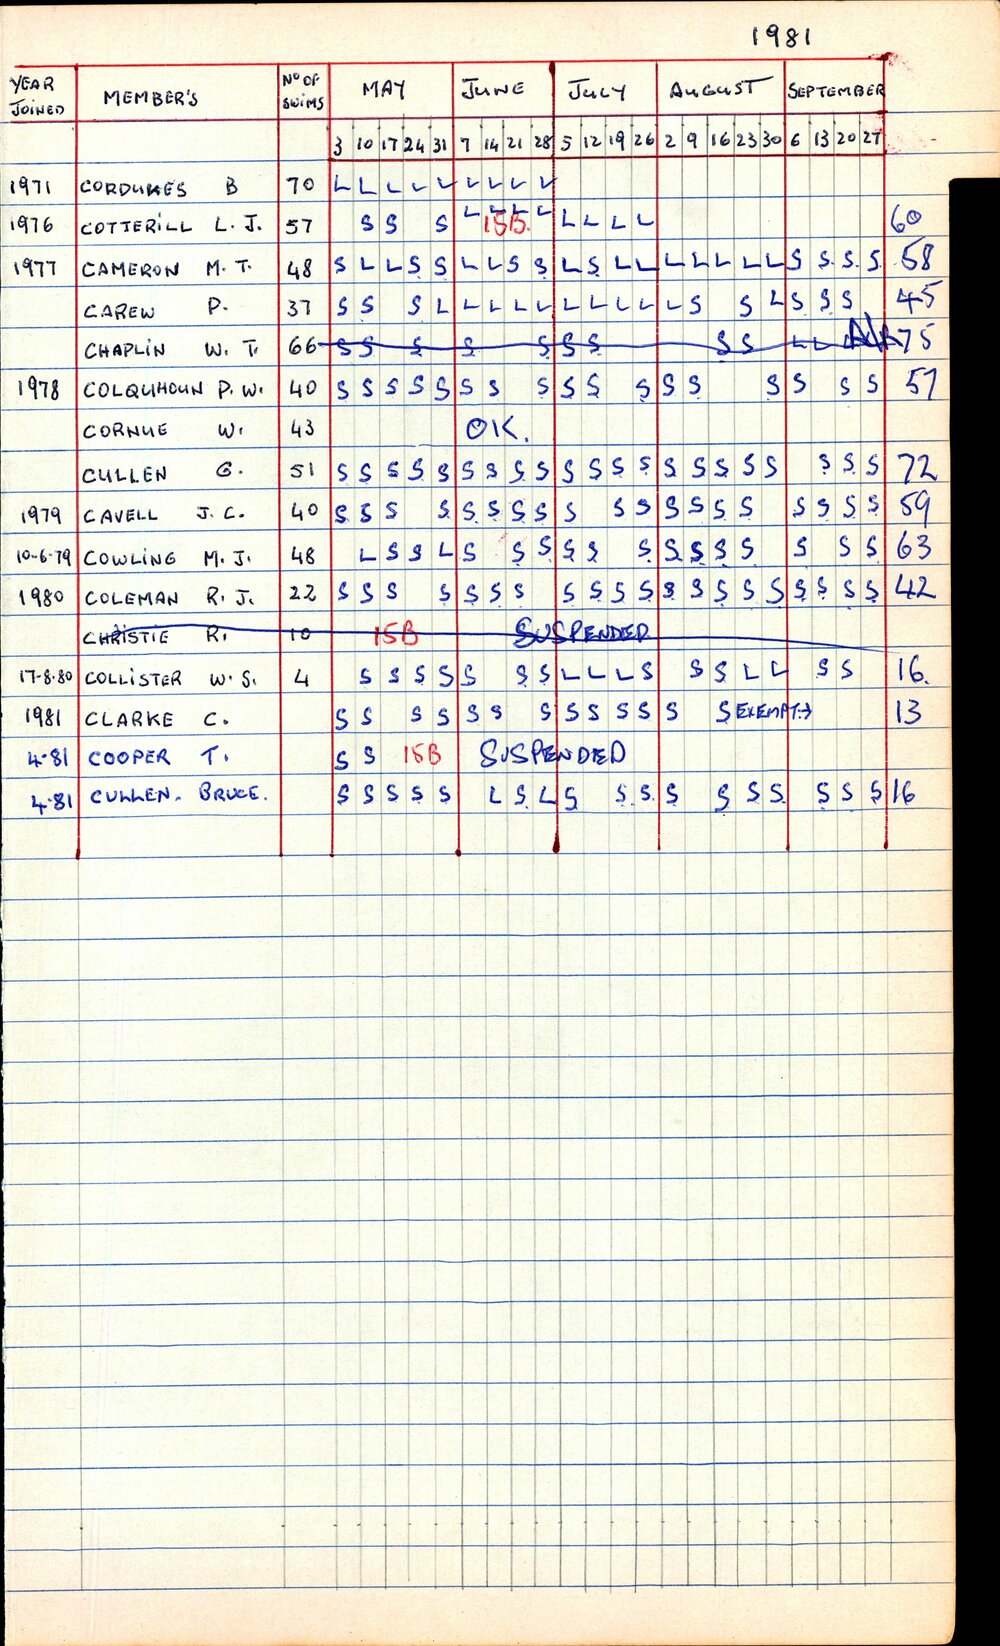 1981
YEAR JOINED MEMBER'S Nº OF SWIMS MAY JUNE JULY AUGUST SEPTEMBER
3 10 17 24 31 7 14 21 28 5 12 19 26 2 9 16 23 30 6 13 20 27
1971 CORDUKES B 70 L L L L L L L L L
1976 COTTERILL L. J. 57 S S S L L L L 15B. L L L L 60
1977 CAMERON M. T. 48 S L L S S L L S S L S L L L L L L L S S S S 58
CAREW P. 37 S S S L L L L L L L L L L S S L S S S 45
CHAPLIN W. T. 66 S S S S S S S S S L L 75
1978 COLQUHOUN P. W. 40 S S S S S S S S S S S S S S S S S 57
CORNUE W. 43 OK.
CULLEN G. 51 S S S S S S S S S S S S S S S S S S S S S 72
1979 CAVELL J. C. 40 S S S S S S S S S S S S S S S S S S S 59
10-6-79 COWLING M. J. 48 L S S L S S S S S S S S S S S S S S 63
1980 COLEMAN R. J. 22 S S S S S S S S S S S S S S S S S S S S 42
CHRISTIE R. 10 15B SUSPENDED
17-8-80 COLLISTER W. S. 4 S S S S S S S L L L S S S L L S S 16.
1981 CLARKE C. S S S S S S S S S S S S S EXEMPT→ 13
4-81 COOPER T. S S 15B SUSPENDED
4-81 CULLEN. BRUCE. S S S S S L S L S S S S S S S S S S 16